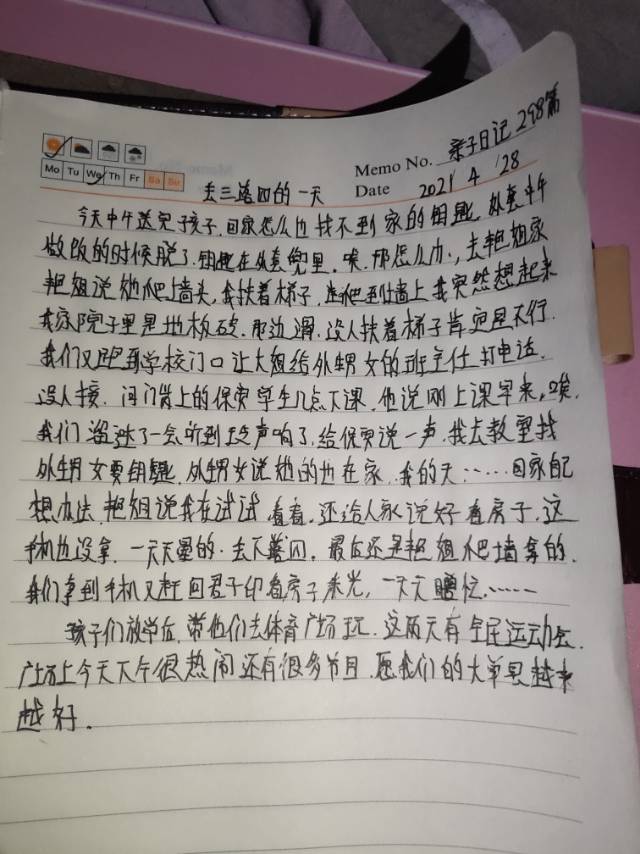 Memo No. 亲子日记 298篇
Mo Tu We Th Fr Sa Su
Date 2021 4 28
丢三落四的一天
今天中午送完孩子.回家怎么也找不到家的钥匙.外套中午
做饭的时候脱了.钥匙在外套兜里.唉.那怎么办.,去艳姐家
艳姐说她爬上墙头,我扶着梯子,当爬到墙上我突然想起来
我家院子里是地板砖.那边滑.没人扶着梯子肯定是不行.
我们又跑到学校门口让大姐给外甥女的班主任打电话.
没人接.问门岗上的保安学生几点下课.他说刚上课早来,唉.
我们溜达了一会听到铃声响了.给保安说一声.我去教室找
外甥女要钥匙.外甥女说她的也在家.我的天……回家自己
想办法.艳姐说我在试试看看.还给人家说好看房子.这
手机也没拿.一天天晕的.丢三落四.最后还是艳姐爬墙拿的.
我们拿到手机又赶回君子印看房子采光,一天天瞎忙.……
孩子们放学后.带他们去体育广场玩.这两天有全民运动会.
广场上今天下午很热闹还有很多节目.愿我们的大单县越来
越好.